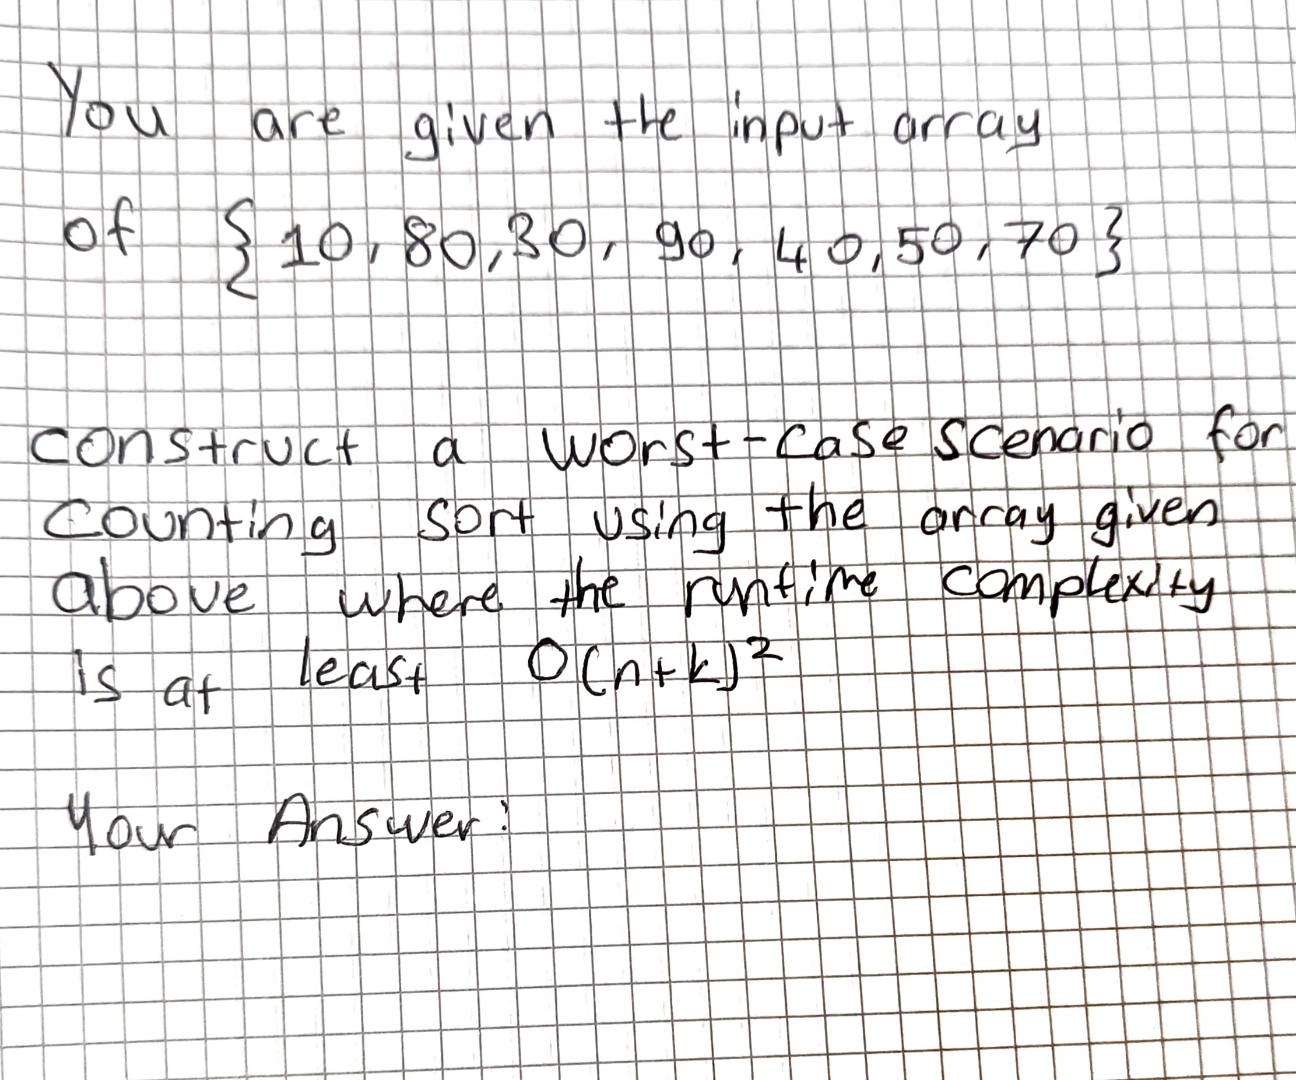 You are given the input array
of {10, 80, 30, 90, 40, 50, 70}
construct a worst-case scenario for
counting sort using the array given
above where the runtime complexity
is at least O(n+k)²
Your Answer: